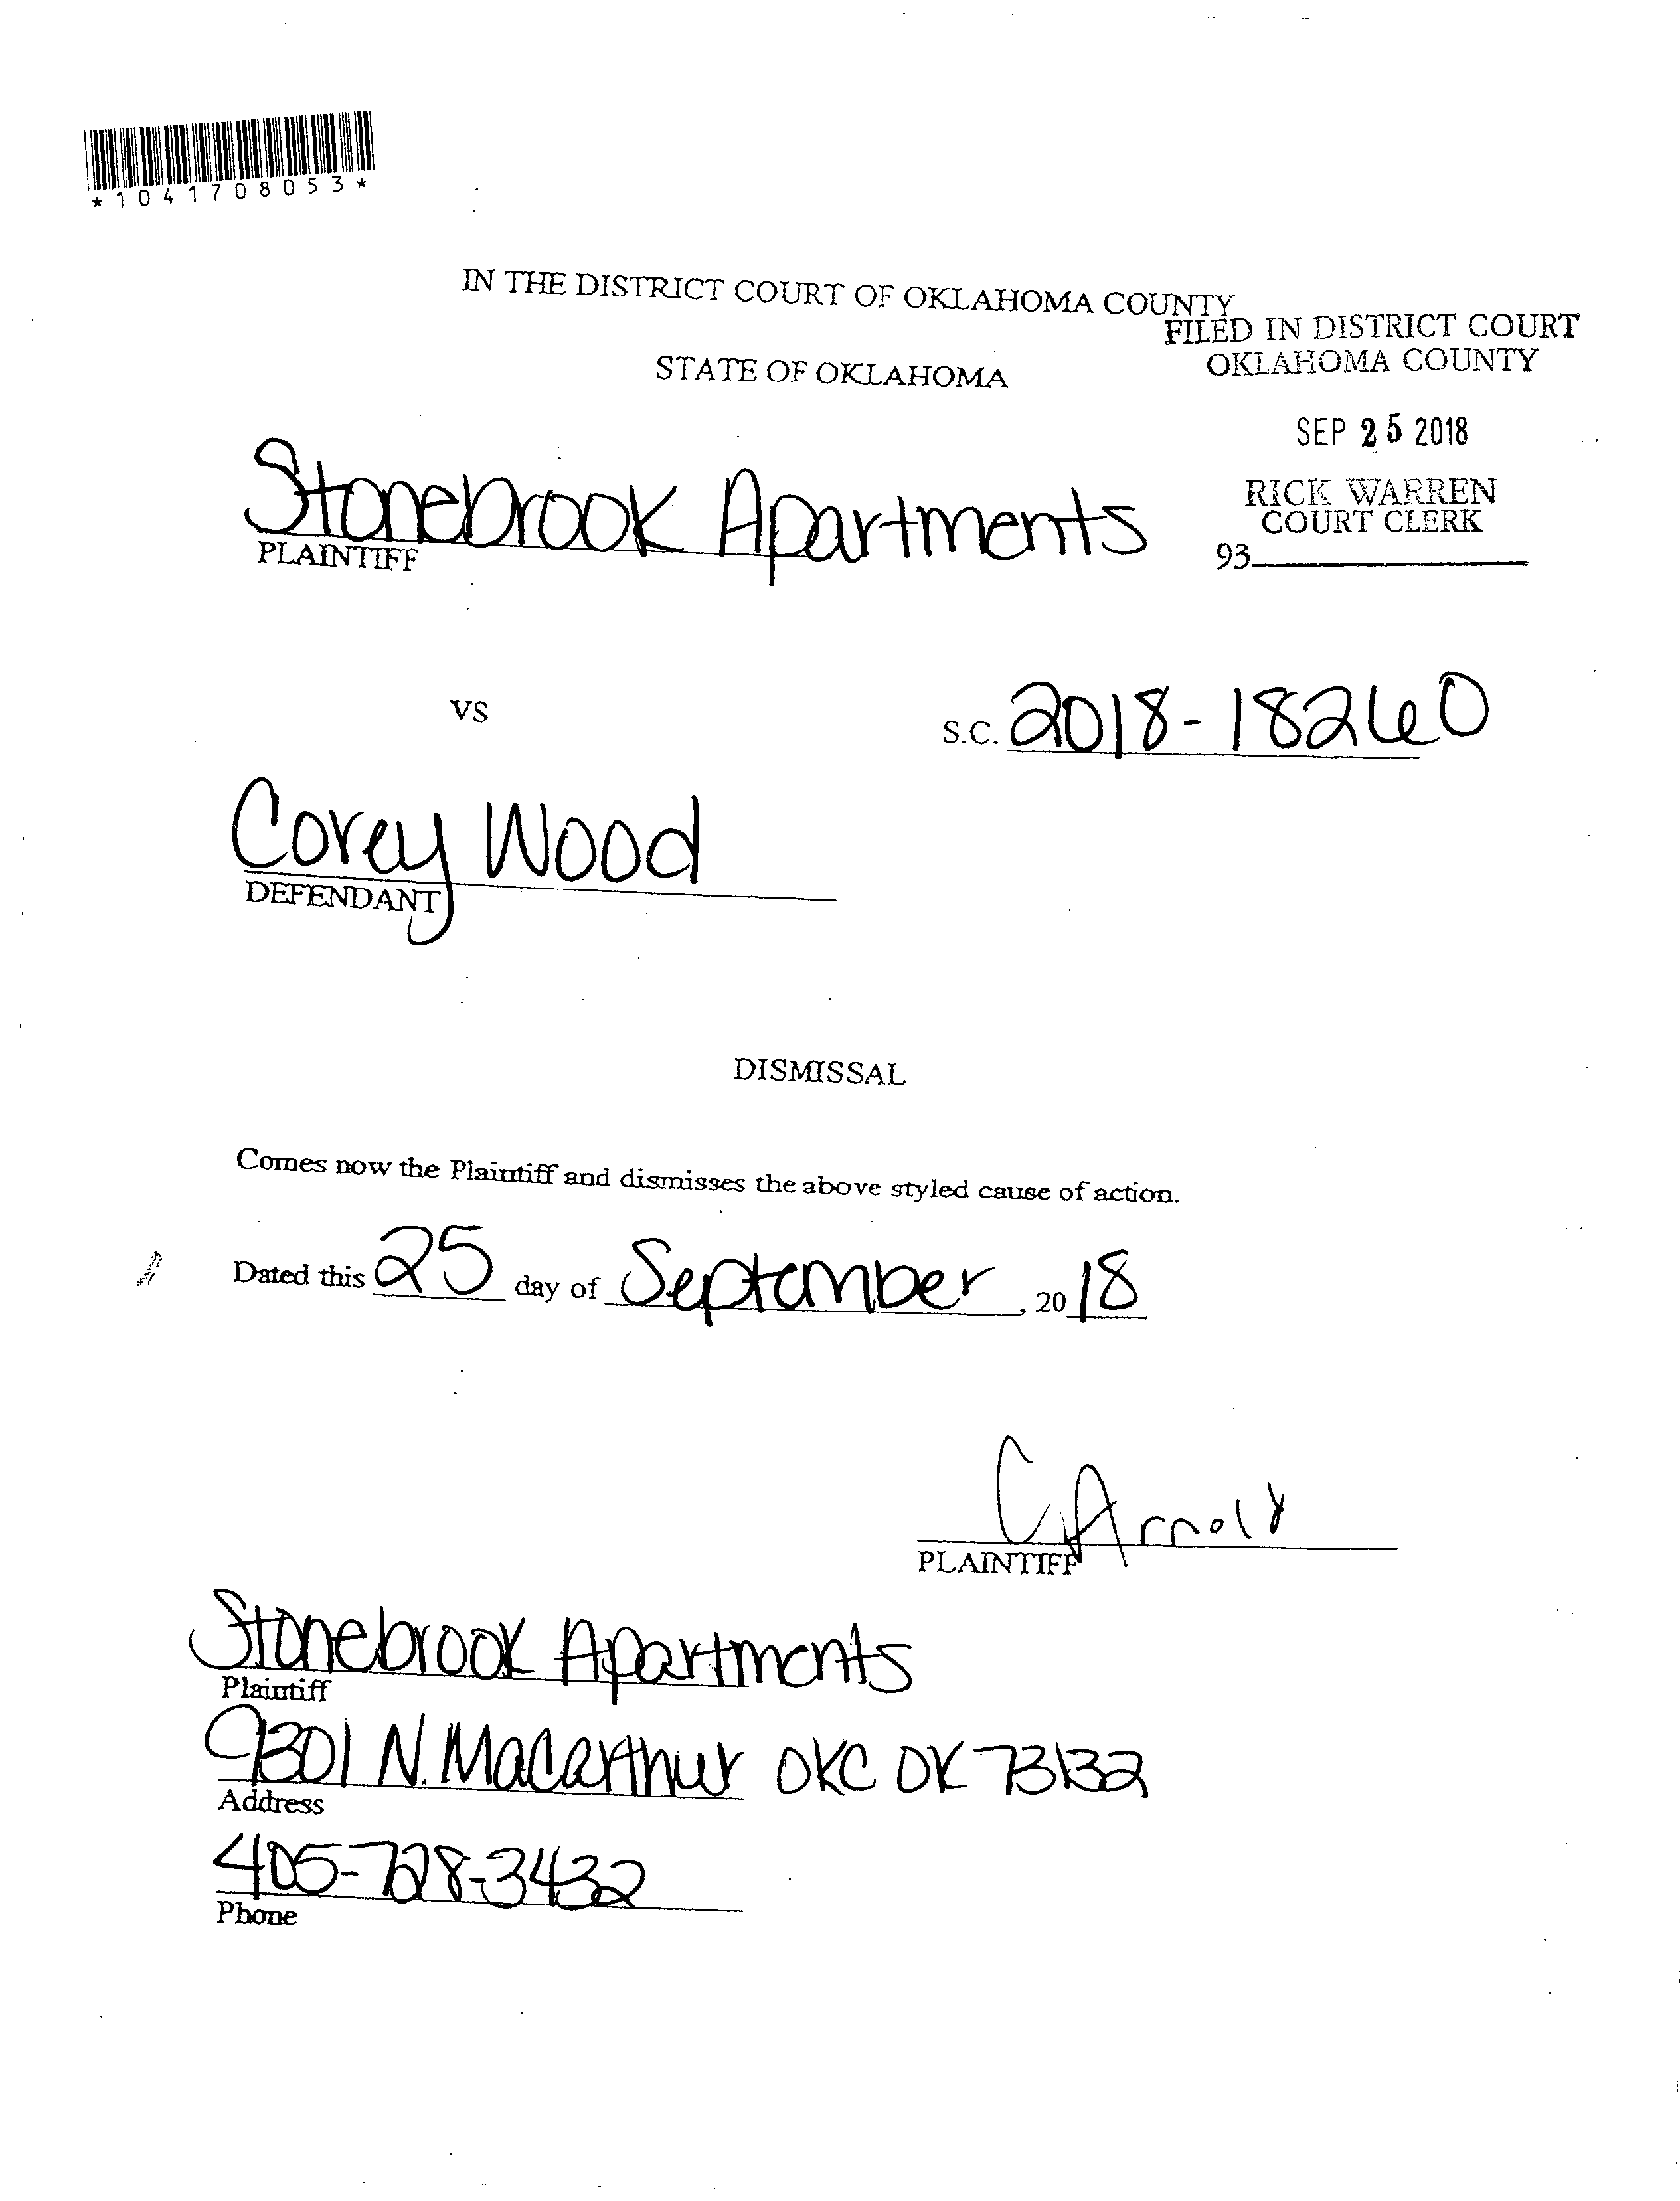 *1041708053*
IN THE DISTRICT COURT OF OKLAHOMA COUNTY
FILED IN DISTRICT COURT
OKLAHOMA COUNTY
STATE OF OKLAHOMA
SEP 25 2018
RICK WARREN
COURT CLERK
93
Stonebrook Apartments
PLAINTIFF
VS
S.C. 2018-18260
Corey Wood
DEFENDANT
DISMISSAL
Comes now the Plaintiff and dismisses the above styled cause of action.
Dated this 25 day of September, 2018
C Arnold
PLAINTIFF
Stonebrook Apartments
Plaintiff
9301 N. Macarthur OKC OK 73132
Address
405-728-3432
Phone